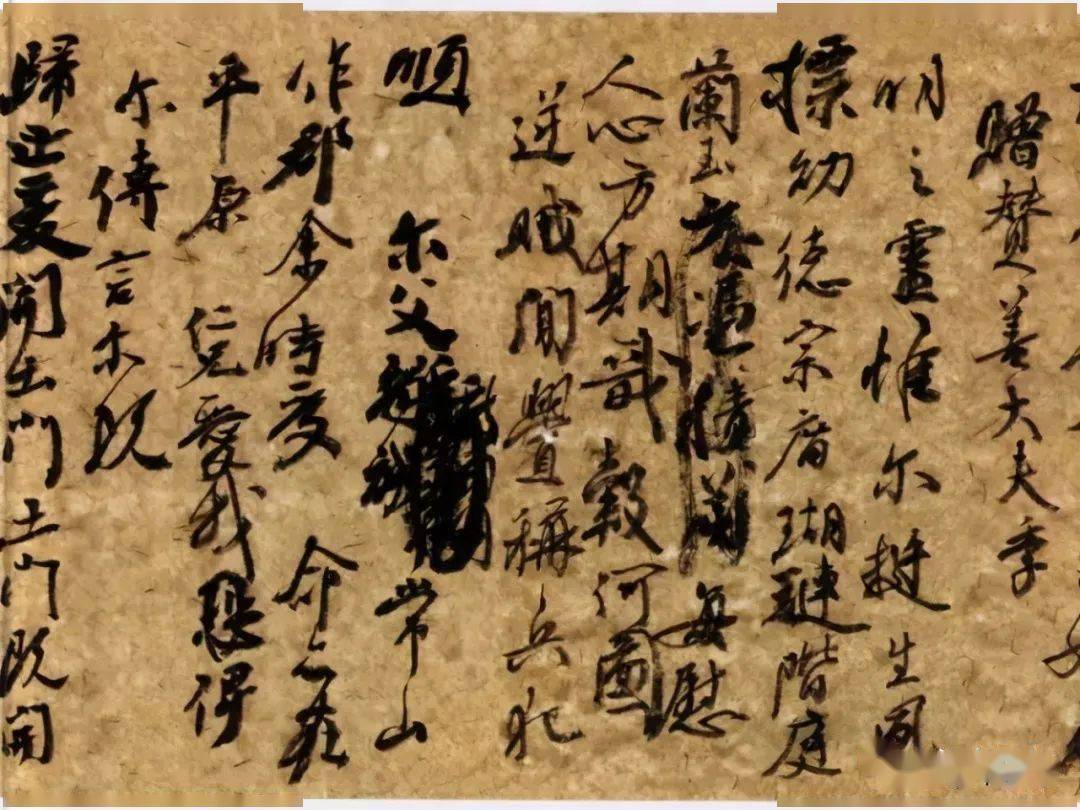 贈贊善大夫季
明之靈惟尔挺生夙
標幼德宗廟瑚璉階庭
蘭玉每慰
人心方期戩穀何圖
逆賊閒釁稱兵犯
順尔父常山
作郡余時受命亦在
平原仁兄愛我俾
尔傳言尔既
歸止爰開土門土門既開